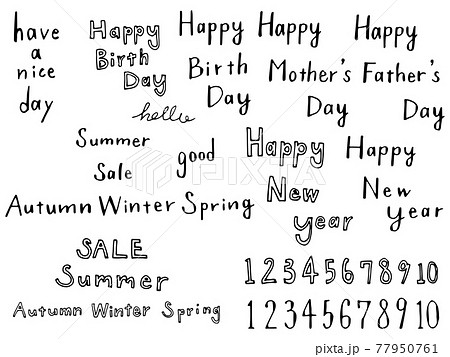 have
a
nice
day
Happy
Birth
Day
hello
Happy
Birth
Day
Happy
Mother's
Day
Happy
Father's
Day
Summer
Sale
good
Happy
New
year
Happy
New
year
Autumn Winter Spring
SALE
Summer
Autumn Winter Spring
12345678910
12345678910
PIXTA
pixta.jp - 77950761